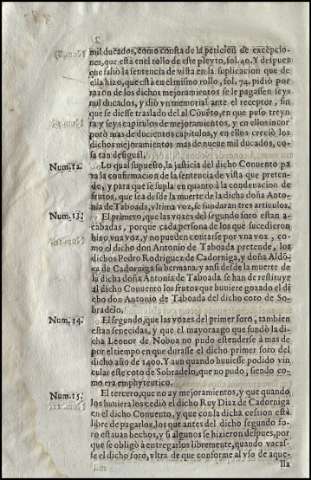 2
mil ducados, como consta de la peticion de excepcio-
nes, que està en el rollo de este pleyto, fol. 40. Y despues
que saliò la sentencia de vista en la suplicacion que de
ella hizo, que està en el mismo rollo, fol. 74. pidiò por
razon de los dichos mejoramientos se le pagassen seys
mil ducados, y diò vn memorial ante el receptor, sin
que se diesse traslado al Cõuẽto, en que puso treyn-
ta y seys capitulos de mejoramientos, y en ellos incor
porò mas de ducientos capitulos, y en ellos creciò los
dichos mejoramientos mas de nueue mil ducados, co-
sa tan desigual.
Num. 12. Lo qual supuesto, la justicia del dicho Conuento pa
ra la confirmacion de la sentencia de vista que preten-
de, y para que se supla en quanto à la condenacion de
frutos, que sea desde la muerte de la dicha doña Anto-
nia de Taboada, vltima voz, se fundaràn tres articulos.
Num. 13. El primero, que las vozes del segundo foro estan a-
cabadas, porque cada persona de los que sucedieron
hizo vna voz, y no pueden contarse por vna voz, co-
mo el dicho don Antonio de Taboada pretende, los
dichos Pedro Rodriguez de Cadorniga, y doña Aldõ-
ça de Cadorniga su hermana, y ansi desde la muerte de
la dicha doña Antonia de Taboada se han de restituyr
al dicho Conuento los frutos que huuiere gozado el di
cho don Antonio de Taboada del dicho coto de So-
bradelo.
Num. 14. El segundo, que las vozes del primer foro, tambien
estan fenecidas, y que el mayorazgo que fundò la di-
cha Leonor de Noboa no pudo estenderse à mas de
por el tiempo en que durasse el dicho primer foro del
dicho año de 1400. Y aun quando huuiesse podido vin
cular este coto de Sobradelo, que no pudo, siendo co-
mo era emphyteutico.
Num. 15. El tercero, que no ay mejoramientos, y que quando
los huuiera los cediò el dicho Rey Diaz de Cadorniga
en el dicho Conuento, y que con la dicha cession està
libre de pagarlos, los que antes del dicho segundo fo-
ro estauan hechos, y si algunos se hizieron despues, por
que se obligò à entregarlos libremente, quando vacas-
se el dicho foro, vltra de que conforme al vso de aque-
lla